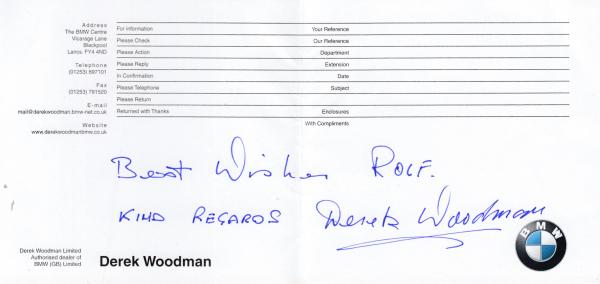 Address
The BMW Centre
Vicarage Lane
Blackpool
Lancs. FY4 4ND
Telephone
(01253) 697101
Fax
(01253) 791520
E-mail
mail@derekwoodman.bmw-net.co.uk
Website
www.derekwoodmanbmw.co.uk
For information Your Reference
Please Check Our Reference
Please Action Department
Please Reply Extension
In Confirmation Date
Please Telephone Subject
Please Return
Returned with Thanks Enclosures
With Compliments
Best Wishes ROLF.
KIND REGARDS Derek Woodman
Derek Woodman Limited
Authorised dealer of
BMW (GB) Limited
Derek Woodman
BMW